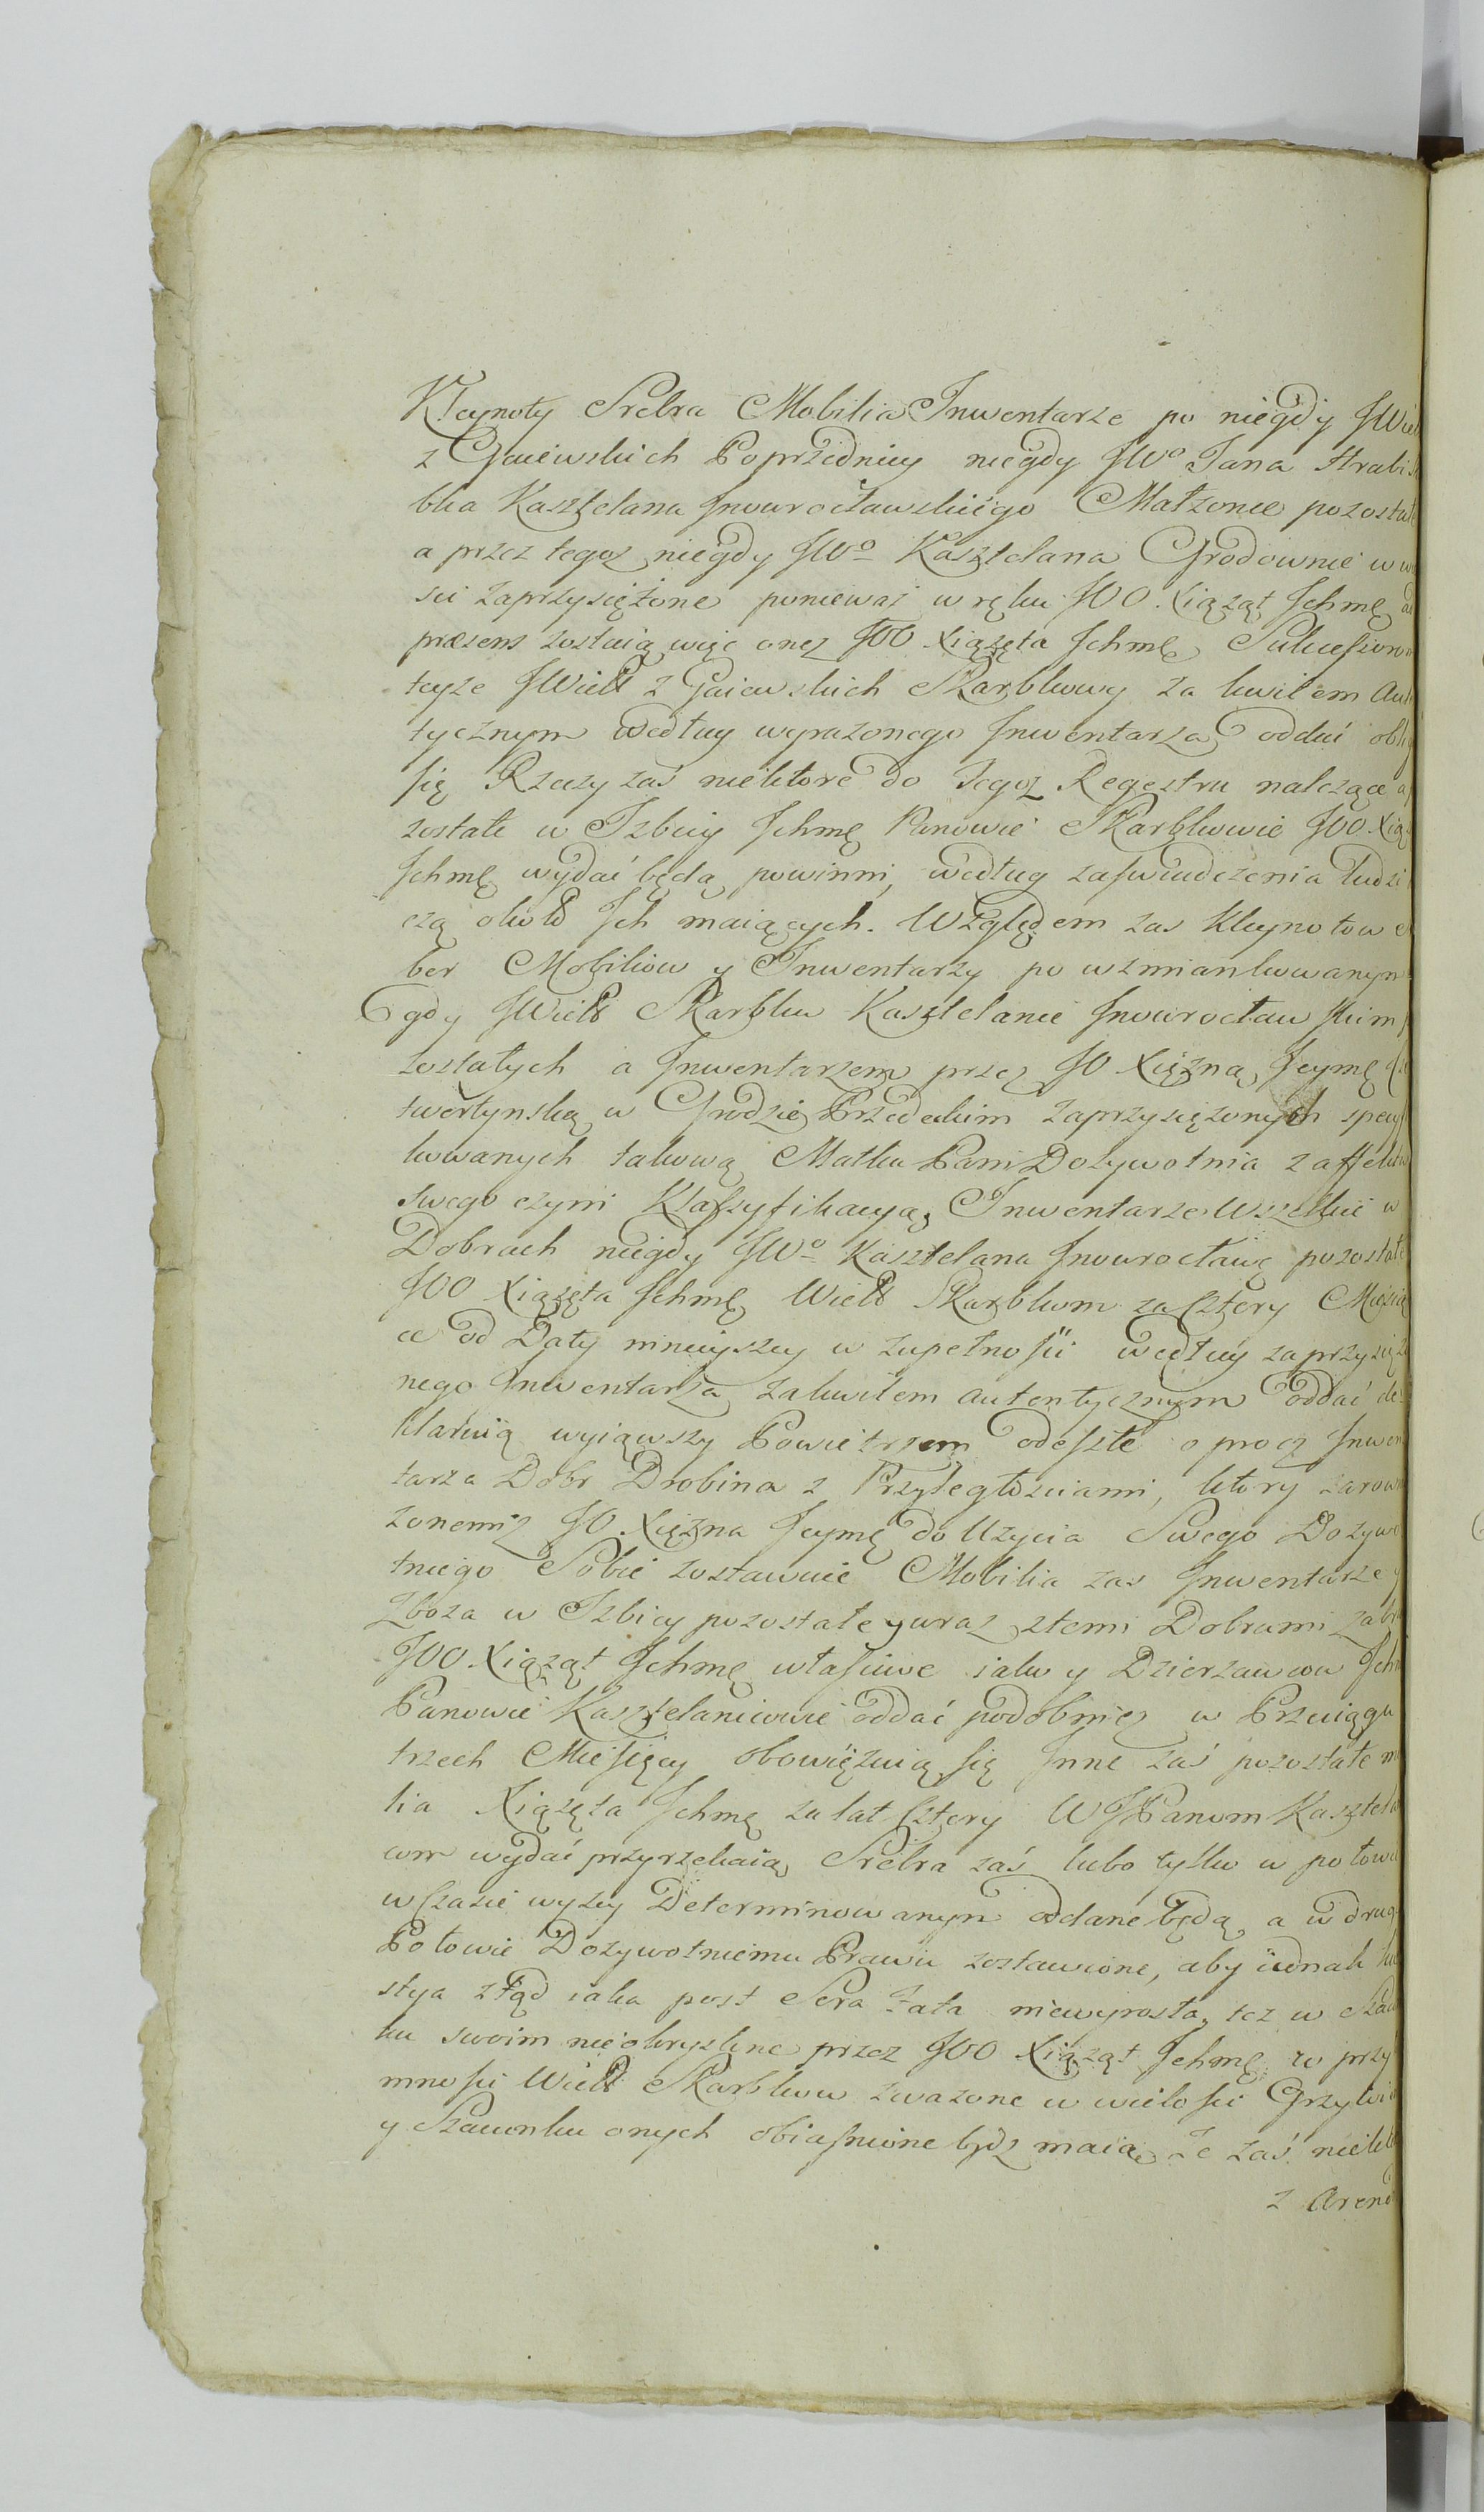 Kleynoty Srebra Mobilia Inwentarze po niegdy JWiel
z Gaiewskich Poprzedniey niegdy JWo Jana Hrabi Sk
bka Kasztelana Jnowrocławskiego Małzonce pozostałe
a przez tegoz niegdy JWo Kasztelana Grodownie w w
sci zaprzysięzone poniewaz w ręku JOO. Xiąząt Jchmę ad
præsens zostaią więc onez JOO Xiązęta Jchmę Sukcessorom
teyze JWiell z Gaiewskich Skarbkowy za kwitem Aute
tycznym według wyrazonego Jnwentarza oddać oblig
się Rzeczy zaś niektore do tegoz Regestru nalezące a
zostałe w Izbicy Jchmę Panowie Skarbkowie JOO. Xią
Jchmę wydać będą powinni, według zaswiadczenia ludzi
czą około Jch maiących. Względem zas Kleynotow S
ber Mobiliow y Inwentarzy po wzmiankowanym
gdy JWiell Skarbku Kasztelanie Jnowrocławskim
zostałych a Jnwentarzem przez JO Xięzną Jeymę
twertynską w Grodzie Przedeckim zaprzysięzonych specyf
kowanych takową Matka Pani Dozywotnia z affektu
swego czyni Klassyfikacyą, Inwentarze Wszelkie w
Dobrach niegdy JWo Kasztelana Jnowrocławę pozostałe
JOO Xiązęta Jchmę Wiell Skarbkom za Cztery Miesią
ce od Daty ninieyszey w zupełności według zaprzysięzo
nego Jnwentarza zakwitem autentycznym oddać de
klaruią wyiąwszy Powietrzem odeszłe oprocz Jnwen
tarza Dobr Drobina z Przyległosciami, ktory zarown
zonemiz JO. Xięzna Jeymę do Uzycia Swego Dozywo
tniego Sobie zostawuie Mobilia zas Jnwentarze y
Zboza w Izbicy pozostałe y wraz ztemi Dobrami zabr
JOO. Xiąząt Jchmę własciwe iako y Dzierzawcow Jchm
Panowie Kasztelanicowie oddać podobniez w Przeciągu
trzech Miesięcy obowięzuią się Jnne zaś pozostałe m
lia Xiązęta Jchmę za lat Cztery WJPanom Kasztela
com wydać przyrzekaią, Srebra zaś lubo tylko w połowi
w Czasie wyzey Determinowanym oddane będą, a w drug
Połowie Dozywotniemu Prawu zostawione, aby iednak
stya ztąd iaka post Sera Fata niewyrosła, tez w Szac
ku swoim nieokryslene przez JOO Xiąząt Jchmę w przy
mnosci Wiell Skarbkow zwazone w wielosci Grzywie
y Szacunku onych obiasnione bydz maią. Ze zaś niekt
z Arend